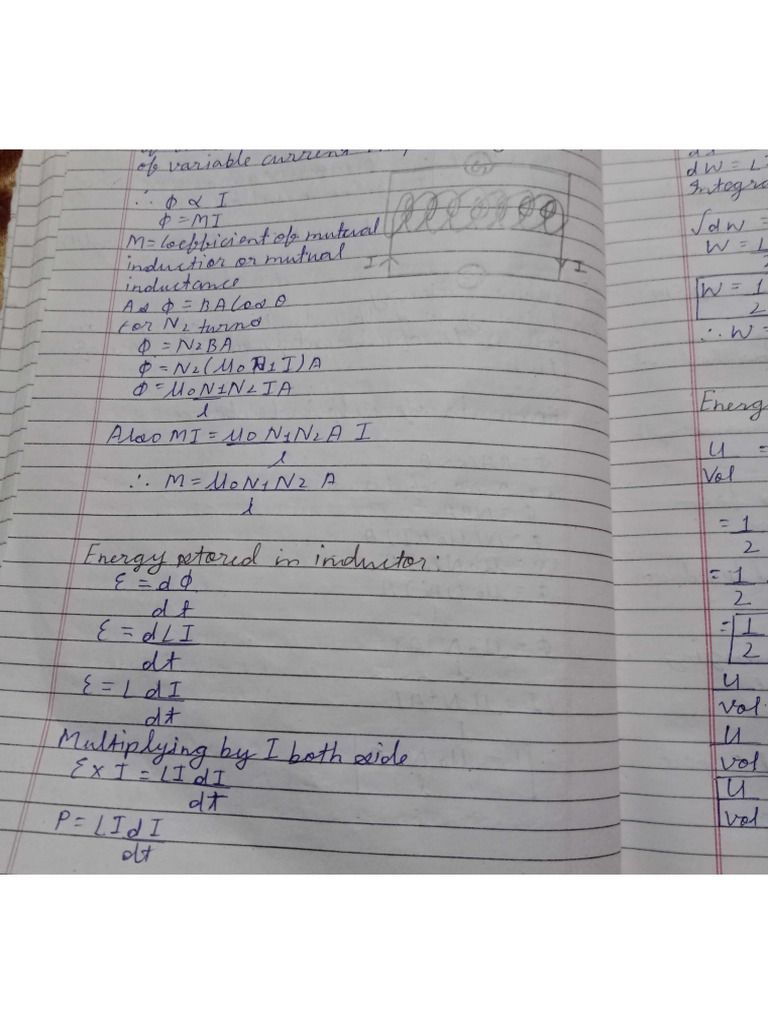 of variable current
∴ Φ ∝ I
Φ = MI
M = Coefficient of mutual
induction or mutual
inductance
As Φ = BA Cos θ
for N2 turns
Φ = N2BA
Φ = N2(μ0 N1I)A
Φ = μ0N1N2IA
l
Also MI = μ0 N1N2A I
l
∴ M = μ0N1N2 A
l
I
I
Energy stored in inductor:
ε = dΦ
dt
ε = dLI
dt
ε = L dI
dt
Multiplying by I both side
ε × I = LI dI
dt
P = LI dI
dt
dW = L
Integra
∫dW =
W = L
2
W = 1
2
∴ W =
Energ
U =
Vol
= 1
2
= 1
2
= 1
2
U
Vol
U
Vol
U
Vol